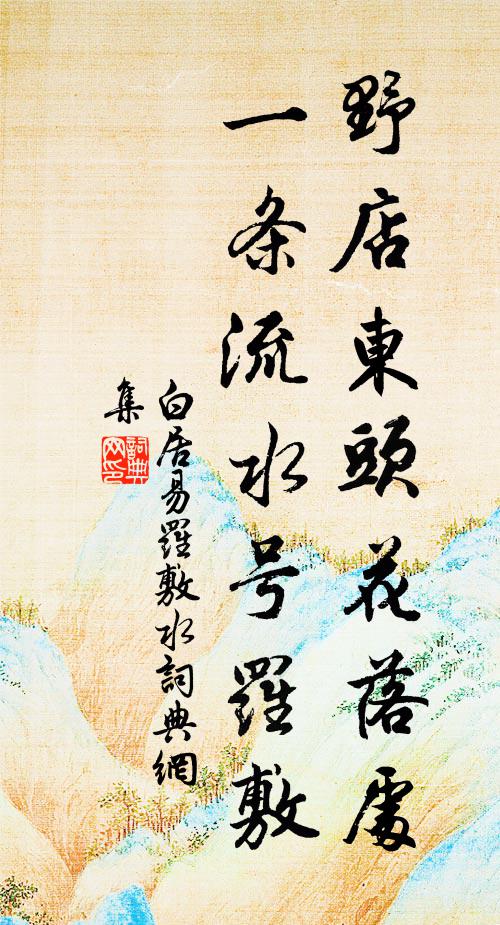 野店東頭花落處
一条流水号羅敷
白居易羅敷水詞典網
集
詞典网印